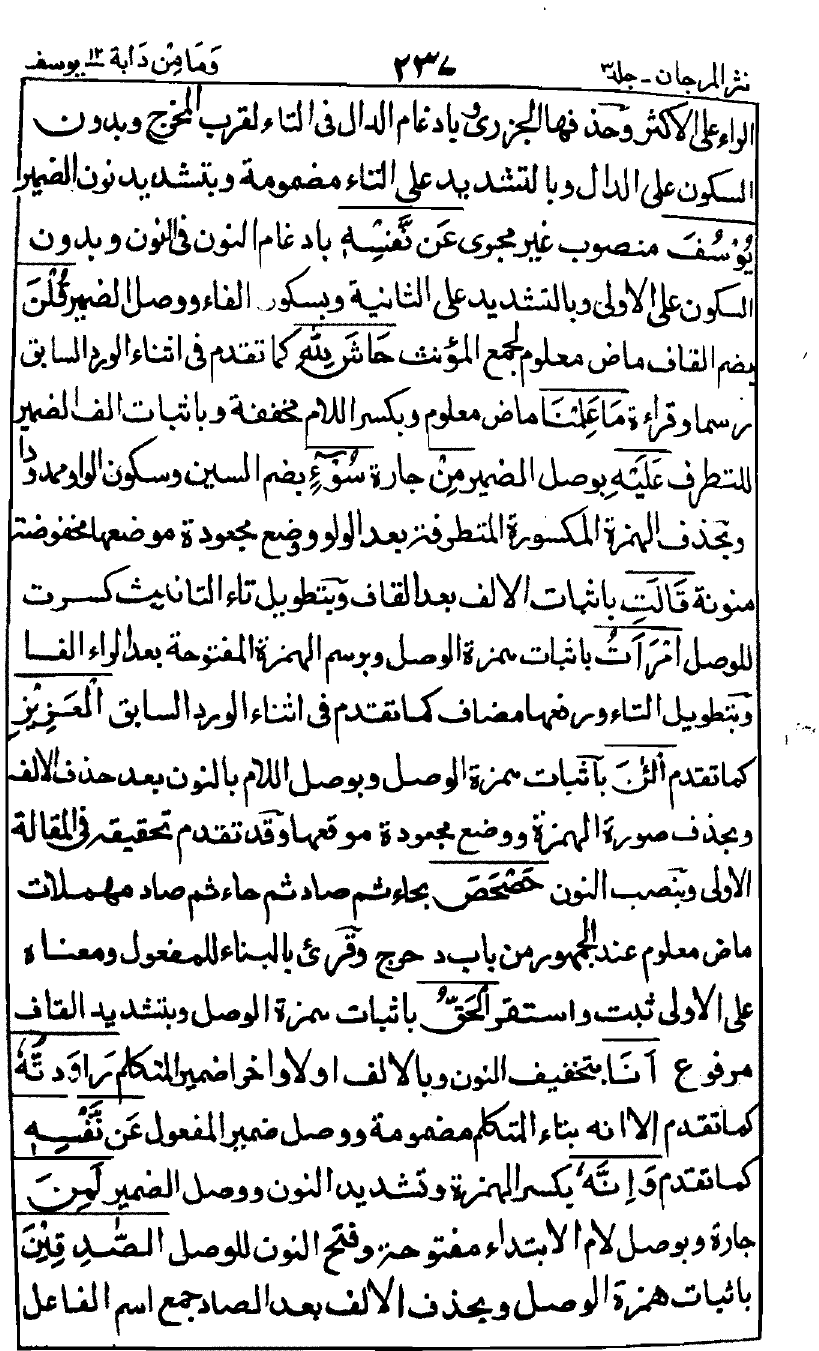 نثر المرجان - جلد ٣ ٢٣٧ وَمَا مِنْ دَابة ١٢ يوسف
الواء على الاكثر وحذفها الجزرى و بادغام الدال فى التاء لقرب المخرج وبدون
السكون على الدال وبالتشديد على التاء مضمومة وبتشديد نون الضمير
يُوْسُفَ منصوب غير مجرى عَن نَّفْسِهٖ بادغام النون فى النون وبدون
السكون على الاولى وبالتشديد على الثانية وبسكون الفاء ووصل الضمير قُلْنَ
بضم القاف ماض معلوم لجمع المؤنث حَاشَ لِلّٰهِ كما تقدم فى اثناء الورد السابق
رسما وقراءة مَا عَلِمْنَا ماض معلوم وبكسر اللام مخففة وباثبات الف الضمير
للتطرف عَلَيْهِ بوصل الضمير مِنْ جارة سُوْٓءٍ بضم السين وسكون الواو ممدودا
وبحذف الهمزة المكسورة المتطرفة بعد الولو ووضع مجعودة موضعها مخفوضة
منونة قَالَتِ باثبات الالف بعد القاف وبتطويل تاء التانيث كسرت
للوصل امْرَاَتُ باثبات همزة الوصل وبرسم الهمزة المفتوحة بعد الراء الفا
وبتطويل التاء ورفعها مضاف كما تقدم فى اثناء الورد السابق الْعَزِيْزِ
كما تقدم الْئٰنَ باثبات همزة الوصل وبوصل اللام بالنون بعد حذف الالف
وبحذف صورة الهمزة ووضع مجعودة موقعها وقد تقدم تحقيقه فى المقالة
الاولى وبنصب النون حَصْحَصَ بحاء ثم صاد ثم حاء ثم صاد مهملات
ماض معلوم عند الجمهور من باب دحرج وقرئ بالبناء للمفعول ومعناه
على الاولى ثبت واستقر الْحَقُّ باثبات همزة الوصل وبتشديد القاف
مرفوع اَنَا بتخفيف النون وبالالف اولا واخرا ضمير المتكلم رَاوَدْتُّهٗ
كما تقدم الا انه بتاء المتكلم مضمومة ووصل ضمير المفعول عَن نَّفْسِهٖ
كما تقدم وَاِنَّهٗ بكسر الهمزة وتشديد النون ووصل الضمير لَمِنَ
جارة وبوصل لام الابتداء مفتوحة وفتح النون للوصل الصّٰدِقِيْنَ
باثبات همزة الوصل وبحذف الالف بعد الصاد جمع اسم الفاعل